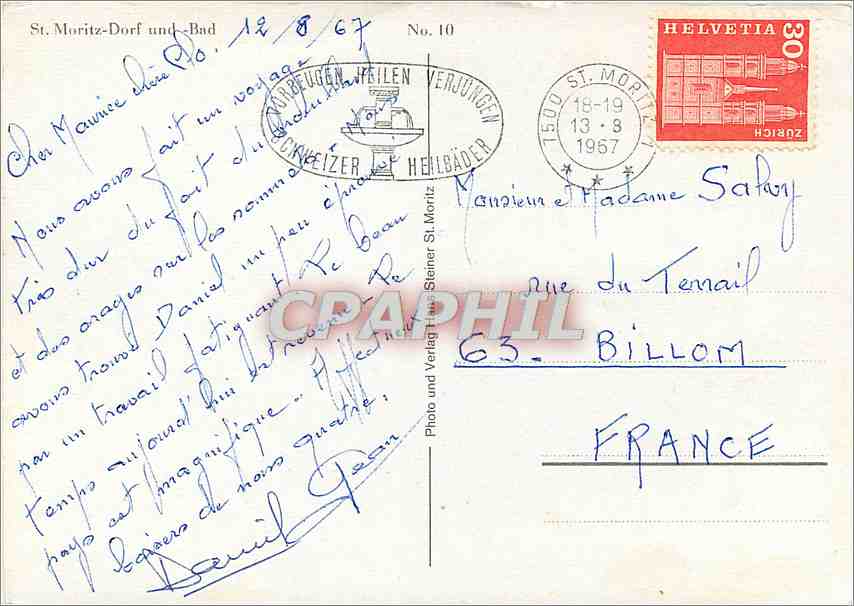 St. Moritz-Dorf und -Bad
No. 10
12 8 67
Cher Maurice chère
Nous avons fait un voyage
très dur du fait du brouillard
et des orages sur les sommets. Nous
avons trouvé Daniel un peu éprouvé
par un travail fatiguant. Le beau
temps aujourd'hui est revenu. Le
pays est magnifique. Affectueux
baisers de nous quatre.
Jean
Daniel
VORBEUGEN HEILEN VERJÜNGEN
SCHWEIZER HEILBÄDER
7500 ST. MORITZ 1
18-19
13.8
1967
HELVETIA
30
ZÜRICH
Photo und Verlag Hans Steiner St. Moritz
Monsieur et Madame Salvy
rue du Terrail
63. BILLOM
FRANCE
CPAPHIL